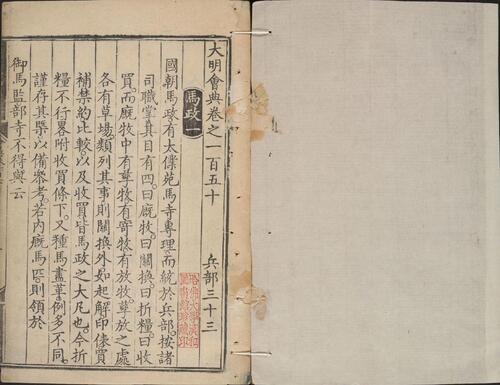 大明會典卷之一百五十
兵部三十三
馬政一
國朝馬政有太僕苑馬寺專理而統於兵部按諸
司職掌其目有四曰廐牧曰關換曰折糧曰收
買而廐牧中有孳牧有寄牧有放牧孳放之處
各有草場類列其事則關換外如起解印俵買
補禁約比較以及收買皆馬政之大凡也今折
糧不行畧附收買條下又種馬盡革例多不同
謹存其槩以備參考若内廐馬匹則領於
御馬監部寺不得與云